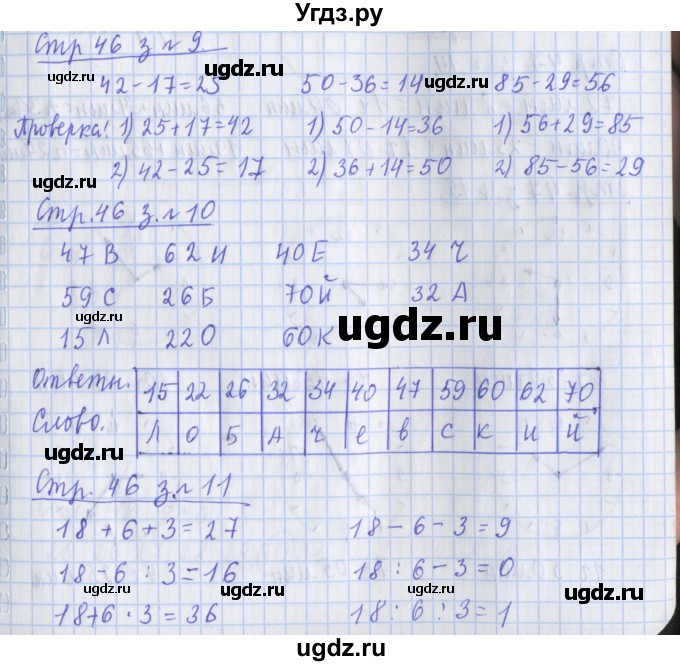 Угдз.ру
Стр 46 з № 9.
42-17=25 50-36=14 85-29=56
Проверка! 1) 25+17=42 1) 50-14=36 1) 56+29=85
2) 42-25=17 2) 36+14=50 2) 85-56=29
Стр. 46 з. № 10
47 В 62 И 40 Е 34 Ч
59 С 26 Б 70 Й 32 А
15 Л 22 О 60 К
Ответы. 15 22 26 32 34 40 47 59 60 62 70
Слово. Л О Б А Ч е в с к и й
Стр. 46 з. № 11
18 + 6 + 3 = 27 18 - 6 - 3 = 9
18 - 6 : 3 = 16 18 : 6 - 3 = 0
18+6 · 3 = 36 18 : 6 : 3 = 1
ugdz.ru
ugdz.ru
ugdz.ru
ugdz.ru
ugdz.ru
ugdz.ru
ugdz.ru
ugdz.ru
ugdz.ru
ugdz.ru
ugdz.ru
ugdz.ru
ugdz.ru